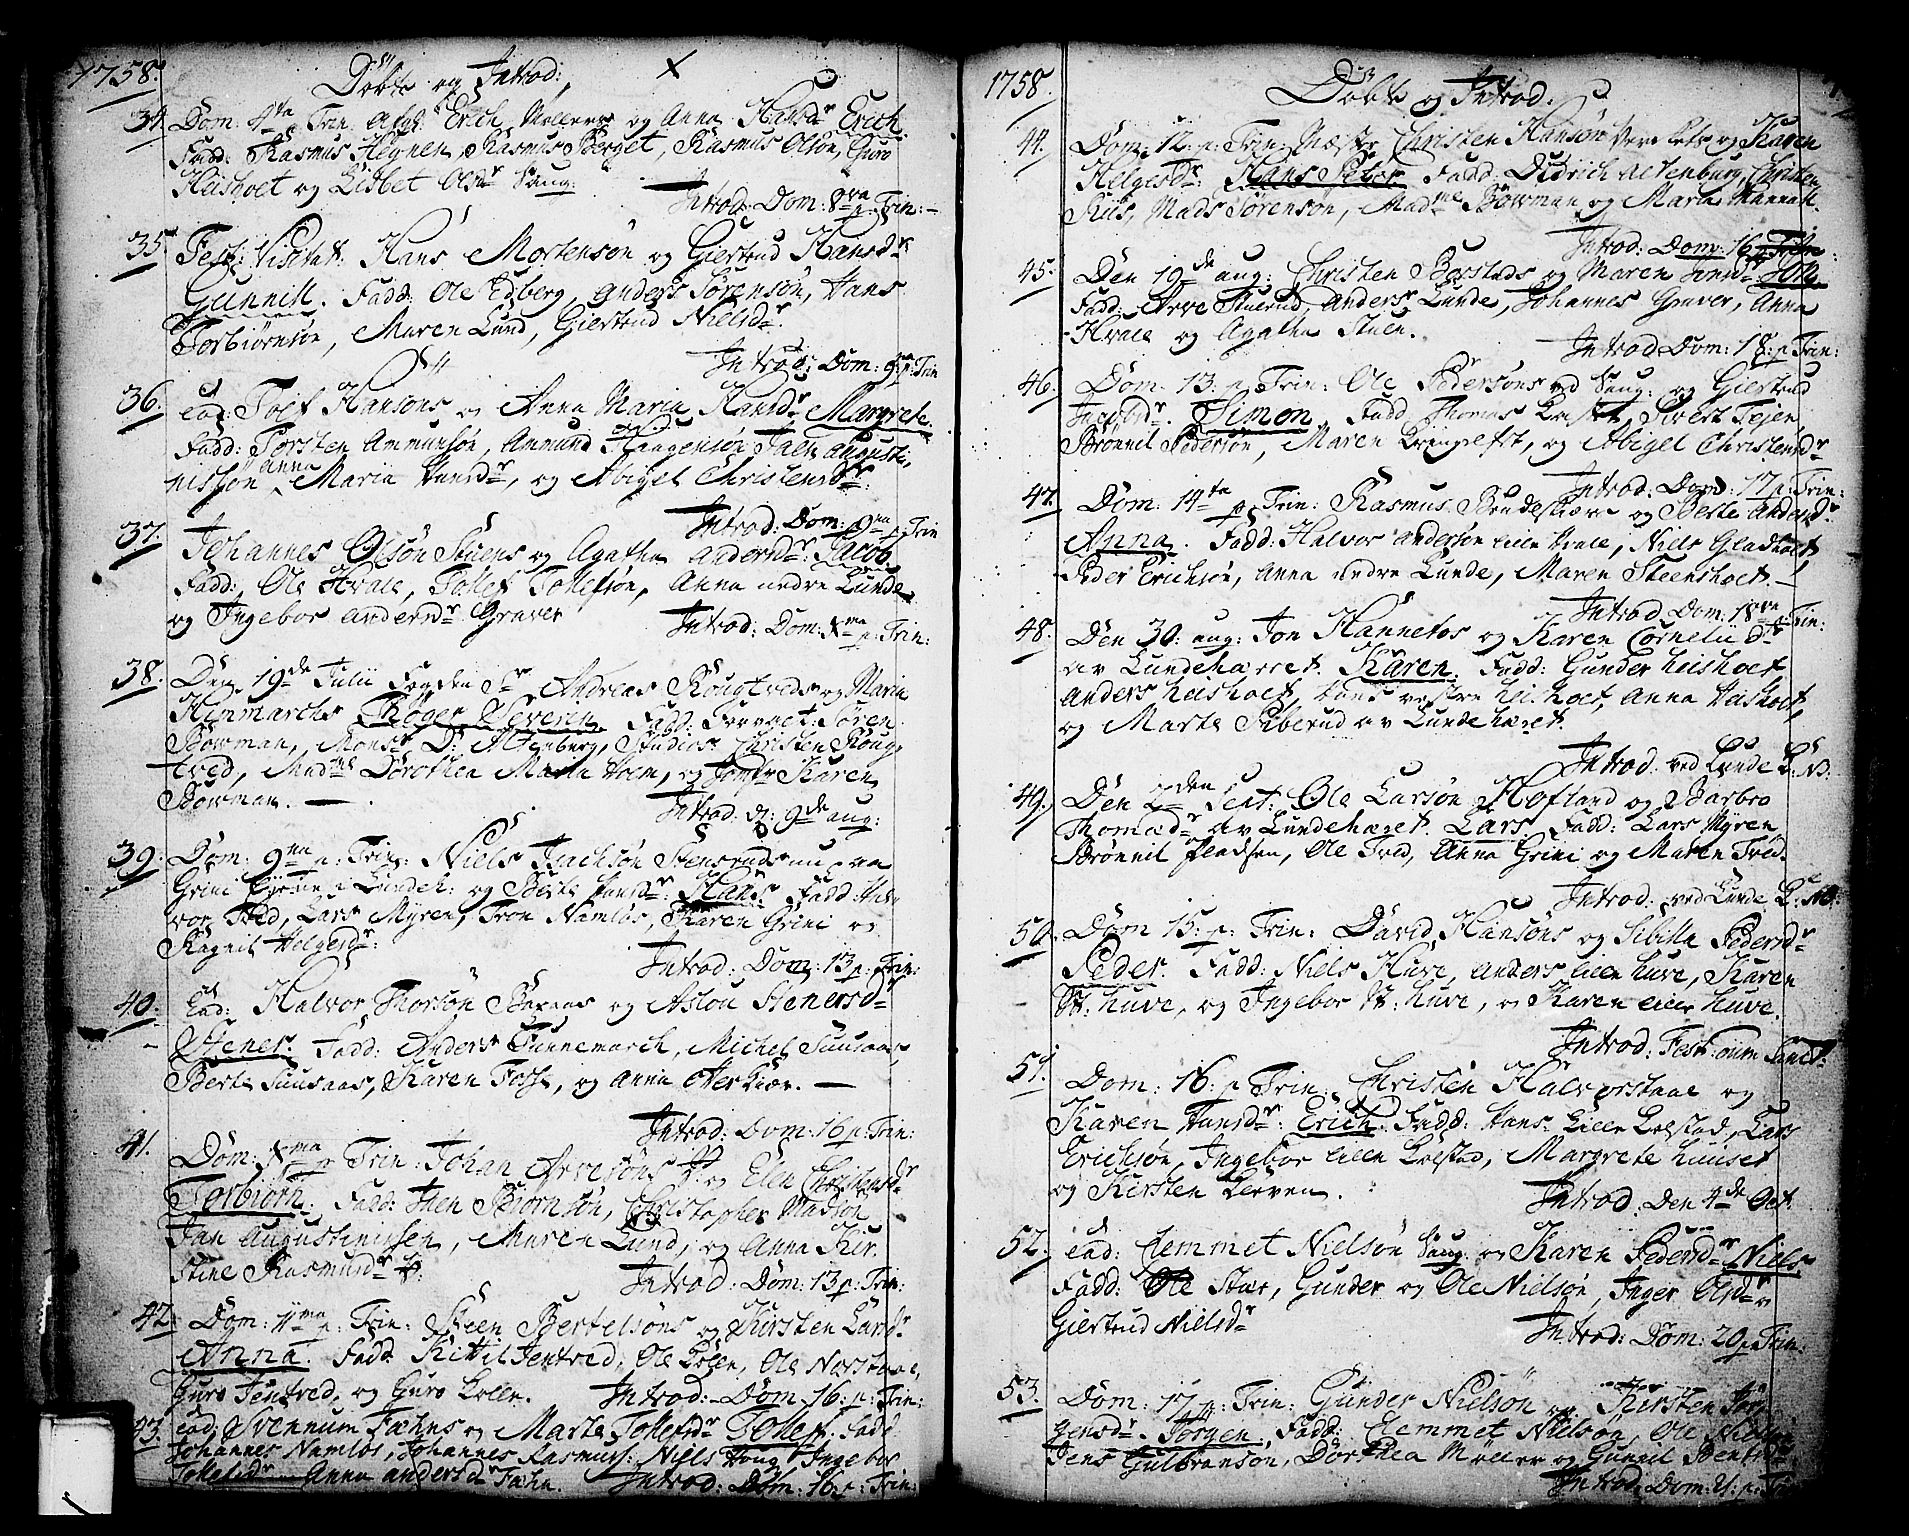 1758. Döbte og Introd:
34. Dom: 4ta p. Trin: Afgd: Erich Møllers og Anna Hansdr Erich.
Fadd: Rasmus Hegnen, Rasmus Berget, Rasmus Olsøn, Guro
Heishoet og Lisbet Olsdr Saug:
Introd: Dom: 8va p. Trin:
35. Fest: Visitat: Hans Mortensøn og Giertrud Hansdr
Gunnill. Fadd: Ole Edberg, Anders Sørensøn, Hans
Torbiørnsøn, Maren Lund, Giertrud Nielsdr.
Introd: Dom: 9na p. Trin
36. ead: Toef Hansøns og Anna Maria Hansdr Margrete.
Fadd: Torsten Ammunsøn, Ammund Haagensøn, Jacn Augusti,
nissøn, Anna Maria Hansdr, og Abigel Christensdr.
Introd: Dom: 9na p. Trin
37. Johannes Olsøn Stuens og Agatha Andersdr: Jacob.
Fadd: Ole Hvale, Tollef Tollefsøn, Anna nedre Lunde
og Ingebor Andersdr Graver
Introd: Dom: Xma p. Trin:
38. Den 19de Julii Fogden Sr Andreas Rougtveds og Maria
Himmarchs Thøger Severin. Fadd: Søren
Bowman, Monsr D: Altenburg, Studios: Christen Roug,
tved, Madme Dorothea Maria Holm, og Jomfr Karen
Bowman.
Introd: d: 9de aug:
39. Dom: 9na p. Trin: Niels Isachsøn Stensruds nu paa
Grini Eyeine i Lundeh: og Berte Hansdr: Hans Fadd: Hal
vor Tved, Lars Myren, Tron Namløs, Karen Grini og
Ragnil Helgesdr:
Introd: Dom: 13 p. Trin:
40. ead: Halvor Thorsøn Bernas og Aslou Stenersdr
Stener. Fadd: Anders Tunnemarch, Michel Suusaas,
Berte Suusaas, Karen Fosse, og Anna Aterkiær.
Introd: Dom: 16 p. Trin:
41. Dom: Xma p Trin: Johan Arvesøns og Elen Christensdr
Torbiørn. Fadd: Iver Biørnsøn, Christopher Madsøn,
Jan Augustinissen, Maren Lund, og Anna Kir
stine Rasmusdr
Introd: Dom: 13 p. Trin:
42. Dom: 11ma p. Trin: Steen Bertelsøns og Kirsten Larsdr
Anna. Fadd: Kittil Jentved, Ole Bolen, Ole Norstaae,
Guro Jentved, og Guro Bolen. Introd: Dom: 16. p. Trin:
43. ead: Svennum Fæhns og Marte Tollefsdr Tollef. Fadd
Johannes Namløs, Johannes Rasmus: Niels Houg Ingebor
Tollefsdr Anna Andersdr Fæhn. Introd: Dom: 16. p. Trin:
1758. Döbte og Introd:
44. Dom: 12. p. Trin: Mester Christen Hansøn og Karen
Helgesdr: Hans Peter. Fadd: Didrich Altenburg, Christen
Riis, Mads Sørensøn, Madme Bowman og Maria Mannal.
Introd: Dom: 16 p. Trin:
45. Den 19de aug: Christen Borstads og Maren
Fadd: Arve Stuerud, Anders Lunde, Johannes Graver, Anna
Hvale og Agatha Stuen.
Introd Dom: 18: p. Trin:
46. Dom: 13: p. Trin: Ole Pedersøns ved Saug: og Giertrud
Ingebrdr. Simon. Fadd: Thomas Sivert Tejen,
Brønnil Pedersøn, Maren Bringelfst, og Abigel Christensdr
Introd: Dom: 17 p. Trin:
47. Dom: 14ta p. Trin: Rasmus Bondeskiær og Berte Andersdr
Anna. Fadd: Halvor Andersøn lille Hvale, Niels Gladhoet,
Peder Erichsøn, Anna nedre Lunde, Maren Steenshoet.
Introd Dom: 18va p. Trin:
48. Den 30: aug: Jon Hannetøs og Karen Cornelii dr
av Lundehærret. Karen. Fadd: Gunder heishoet
Anders heishoet, vestre heishoet, Anna Heishoet,
og Marte Siberud av Lundehæret.
Introd: ved Lunde K: NB:
49. Den 2den Sept: Ole Larsøn Hofland og Barbro
Thomædr av Lundehæret. Lars Fadd: Lars Myren
Brønnil Pladsen, Ole Tved, Anna Grini og Maren Tved.
Introd: ved Lunde K: NB:
50. Dom 15: p. Trin: David Hansøns og Sibilla Pedersdr
Peder. Fadd: Niels Huve, Anders lille huve, Karen
St: huve, og Ingebor St: huve, og Karen lille huve.
Introd: Fest: oum Sanct:
51. Dom: 16: p Trin: Christen Halvorstaae og
Karen Hansdr: Erich. Fadd: Hans Lille Bolstad, Lars
Erichsøn, Ingebor lille Bolstad, Margrete huuset
og Kirsten Lerven.
Introd: Den 4de Oct.
52. ead: Clemmet Nielsøn Saug: og Karen Pedersdr Niels
Fadd: Ole Star, Gunder og Ole Nielsøn, Inger Olsdr og
Giertrud Nielsdr
Introd: Dom: 20 p. Trin:
53. Dom: 17 p. Trin: Gunder Nielsøn og Kirsten Jør
gensdr. Jørgen. Fadd: Clemmet Nielsøn, Ole
Jens Gulbransøn, Dorthea Møller og Gunnil Bentsdr
Introd: Dom: 21: p. Trin